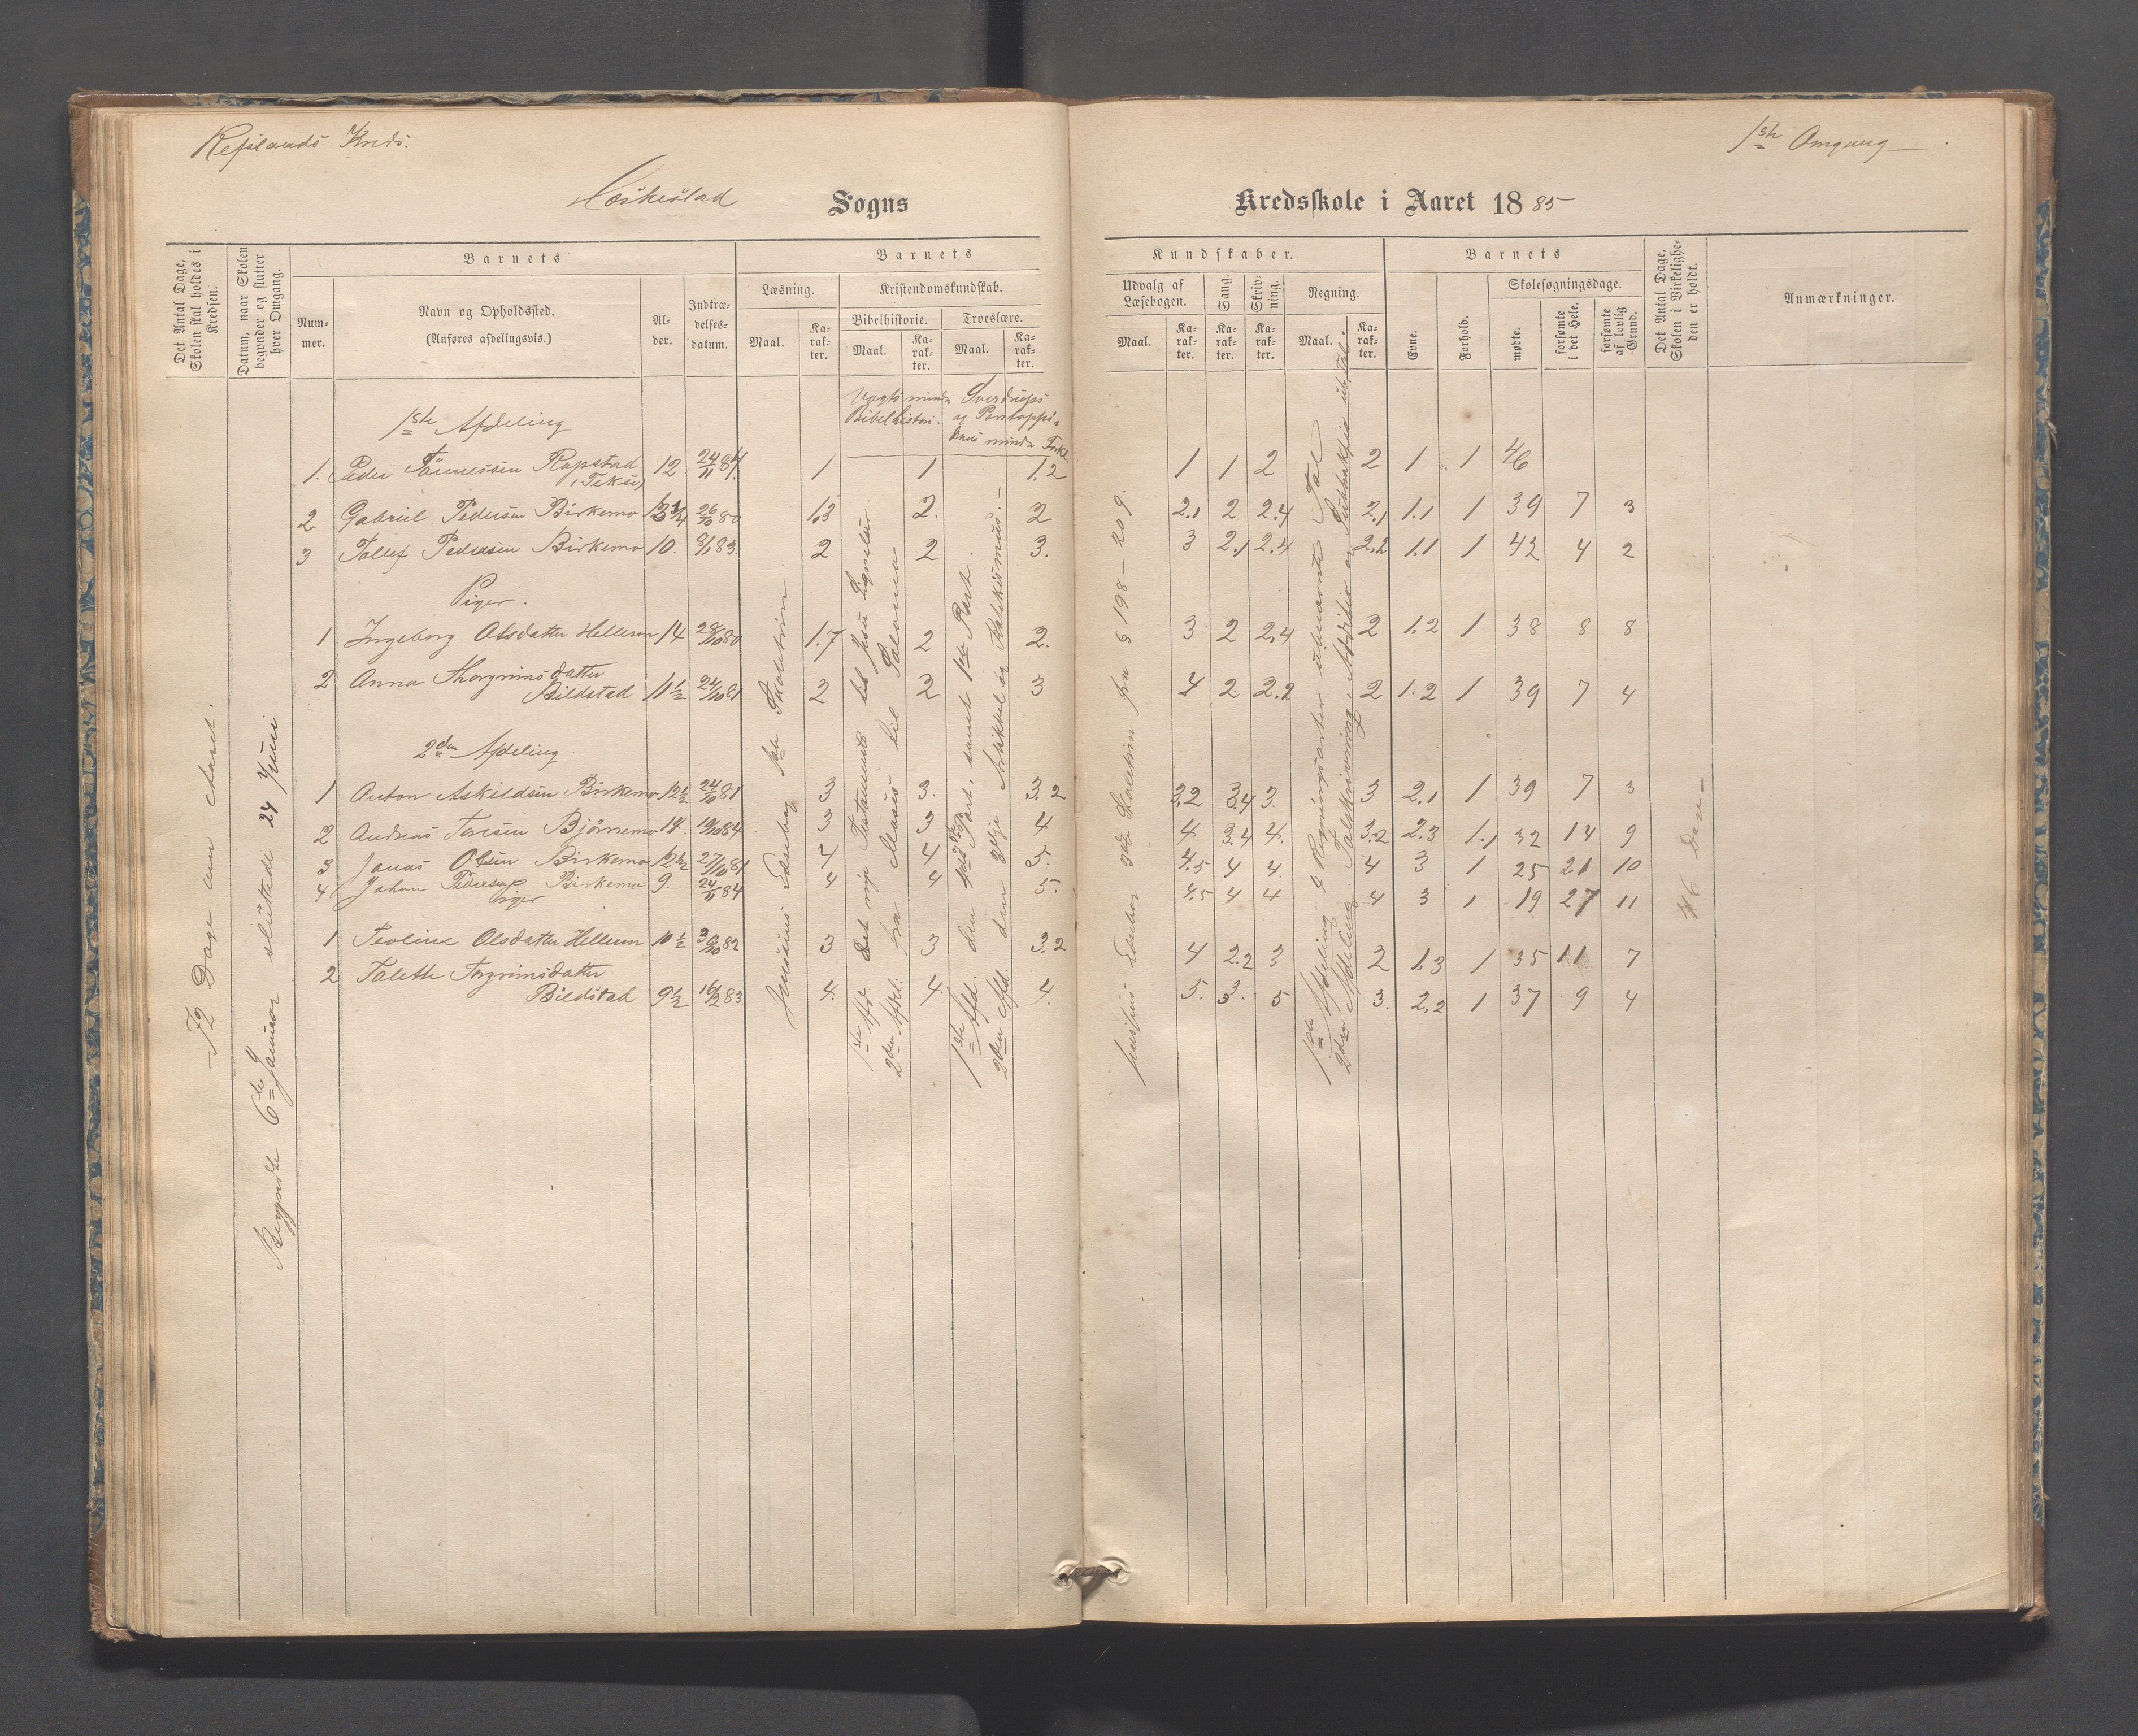 Refslands Kreds.
1ste Omgang
Heskestad Sogns
Kredsskole i Aaret 1885
Det Antal Dage, Skolen skal holdes i Kredsen.
Datum, naar Skolen begynder og slutter hver Omgang.
Barnets
Num-mer.
Navn og Opholdssted.
(Anføres afdelingsvis.)
Al-der.
Indtræ-delses-datum.
Barnets
Læsning.
Kristendomskundskab.
Bibelhistorie.
Troeslære.
Maal.
Ka-rak-ter.
Maal.
Ka-rak-ter.
Maal.
Ka-rak-ter.
Kundskaber.
Udvalg af Læsebogen.
Sang.
Skriv-ning.
Regning.
Maal.
Ka-rak-ter.
Ka-rak-ter.
Ka-rak-ter.
Maal.
Ka-rak-ter.
Barnets
Evne.
Forhold.
Skolesøgningsdage.
mødte.
forsømte i det Hele.
forsømte af lovlig Grund.
Det Antal Dage, Skolen i Virkelighe-den er holdt.
Anmærkninger.
72 Dage om Aaret.
Begyndte 6te Januar sluttede 24 Juni
Vogts mindre Bibelhistori.
Sverdrups og Pontoppidans mindre Forkl.
1ste Afdeling
1. Peder Tönnessen Rapstad 12 24/11 84. 1 1 1.2 1 1 2 2 1 1 46
(Tekse)
2 Gabriel Pedersen Birkemo 13 3/4 26/10 80 1.3 2. 2 2.1 2 2.4 2.1 1.1 1 39 7 3
3 Tollef Pedersen Birkemo 10. 8/1 83. 2 2 3. 3 2.1 2.4 2.2 1.1 1 42 4 2
Piger.
1 Ingeborg Olsdatter Hellern 14 28/10 80 1.7 2 2. 3 2 2.4 2 1.2 1 38 8 8
2 Anna Thorgrimsdatter
Bildstad 11 1/2 24/10 81 2 2 3 4 2 2.2 2 1.2 1 39 7 4
2den Afdeling
1 Anton Askildsen Birkemo 12 1/2 24/10 81 3 3. 3.2 3.2 3.4 3. 3 2.1 1 39 7 3
2 Andreas Toresen Bjørnemo 14. 19/10 84 3 3 4 4 3.4 4. 3.2 2.3 1.1 32 14 9
3 Jonas Olsen Birkemo 12 1/2 27/10 81 4 4 5. 4.5 4 4. 4 3 1 25 21 10
4 Johan Pedersen Birkemo 9. 24/11 84 4 4 5. 4.5 4 4 4 3 1 19 27 11
Piger
1 Teoline Olsdatter Hellern 10 1/2 30/10 82 3 3 3.2 4 2.2 3 2 1.3 1 35 11 7
2 Talette Torgrimsdatter
Bildstad 9 1/2 16/2 83 4. 4. 4. 5. 3. 5 3. 2.2 1 37 9 4
Jensenius Læsebog 1ste Skoletrin
1ste Afd. Det nye Testamente til Jesu Lignelser.
2den Afdel. fra Moses til Salomo
1ste Afd. den 3die Part. samt 1ste Part.
2den Afd. den 2den Artikkel og Katekismus.
Jensenius Læsebog 3die Skoletrin fra § 198 - 209.
1ste Afdeling 4 Regningsarter ubenævnte Tal
2den Afdeling Talskrivning, Addition og Subtraktion ub. Tal.
46 Dage